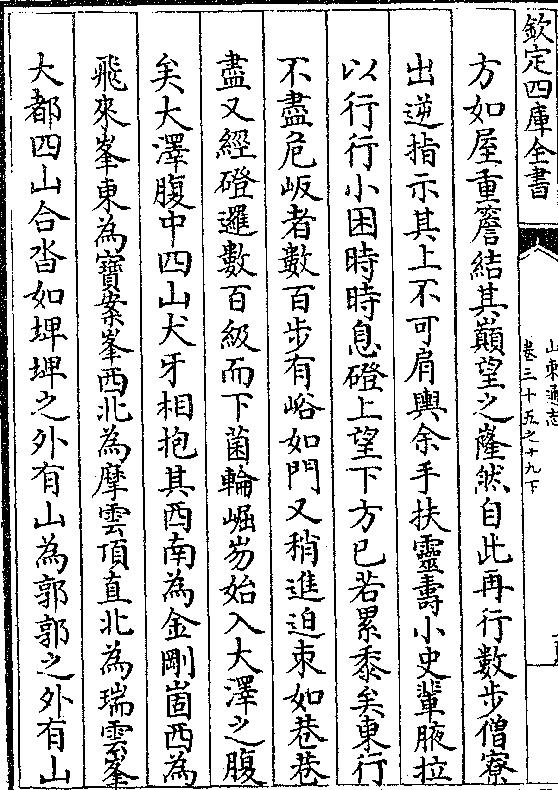 欽定四庫全書
山東通志
卷三十五之十九下
方如屋重簷結其巔望之窿然自此再行數步僧寮
出逆指示其上不可肩輿余手扶靈壽小史輩腋拉
以行行小困時時息磴上望下方已若累黍矣東行
不盡危岅者數百步有峪如門又稍進迫束如巷巷
盡又經磴邐數百級而下菌輪崛岉始入大澤之腹
矣大澤腹中四山犬牙相抱其西南為金剛崮西為
飛來峯東為寶案峯西北為摩雲頂直北為瑞雲峯
大都四山合沓如埤埤之外有山為郭郭之外有山